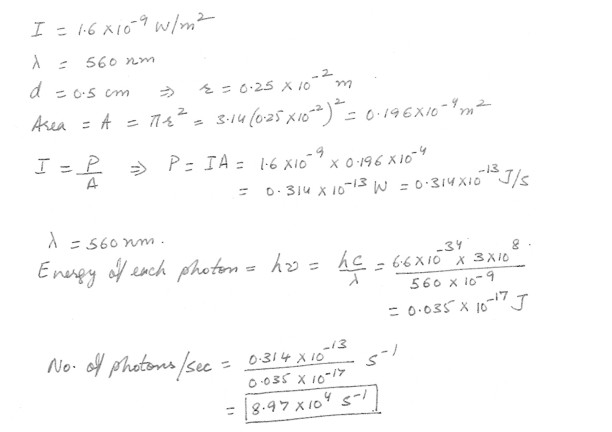 I = 1.6 x 10^-9 W/m^2
λ = 560 nm
d = 0.5 cm ⇒ r = 0.25 x 10^-2 m
Area = A = πr^2 = 3.14 (0.25 x 10^-2)^2 = 0.196 x 10^-4 m^2
I = P/A ⇒ P = IA = 1.6 x 10^-9 x 0.196 x 10^-4
= 0.314 x 10^-13 W = 0.314 x 10^-13 J/s
λ = 560 nm.
Energy of each photon = hν = hc/λ = 6.6 x 10^-34 x 3 x 10^8 / 560 x 10^-9
= 0.035 x 10^-17 J
No. of photons/sec = 0.314 x 10^-13 / 0.035 x 10^-17 s^-1
= 8.97 x 10^4 s^-1